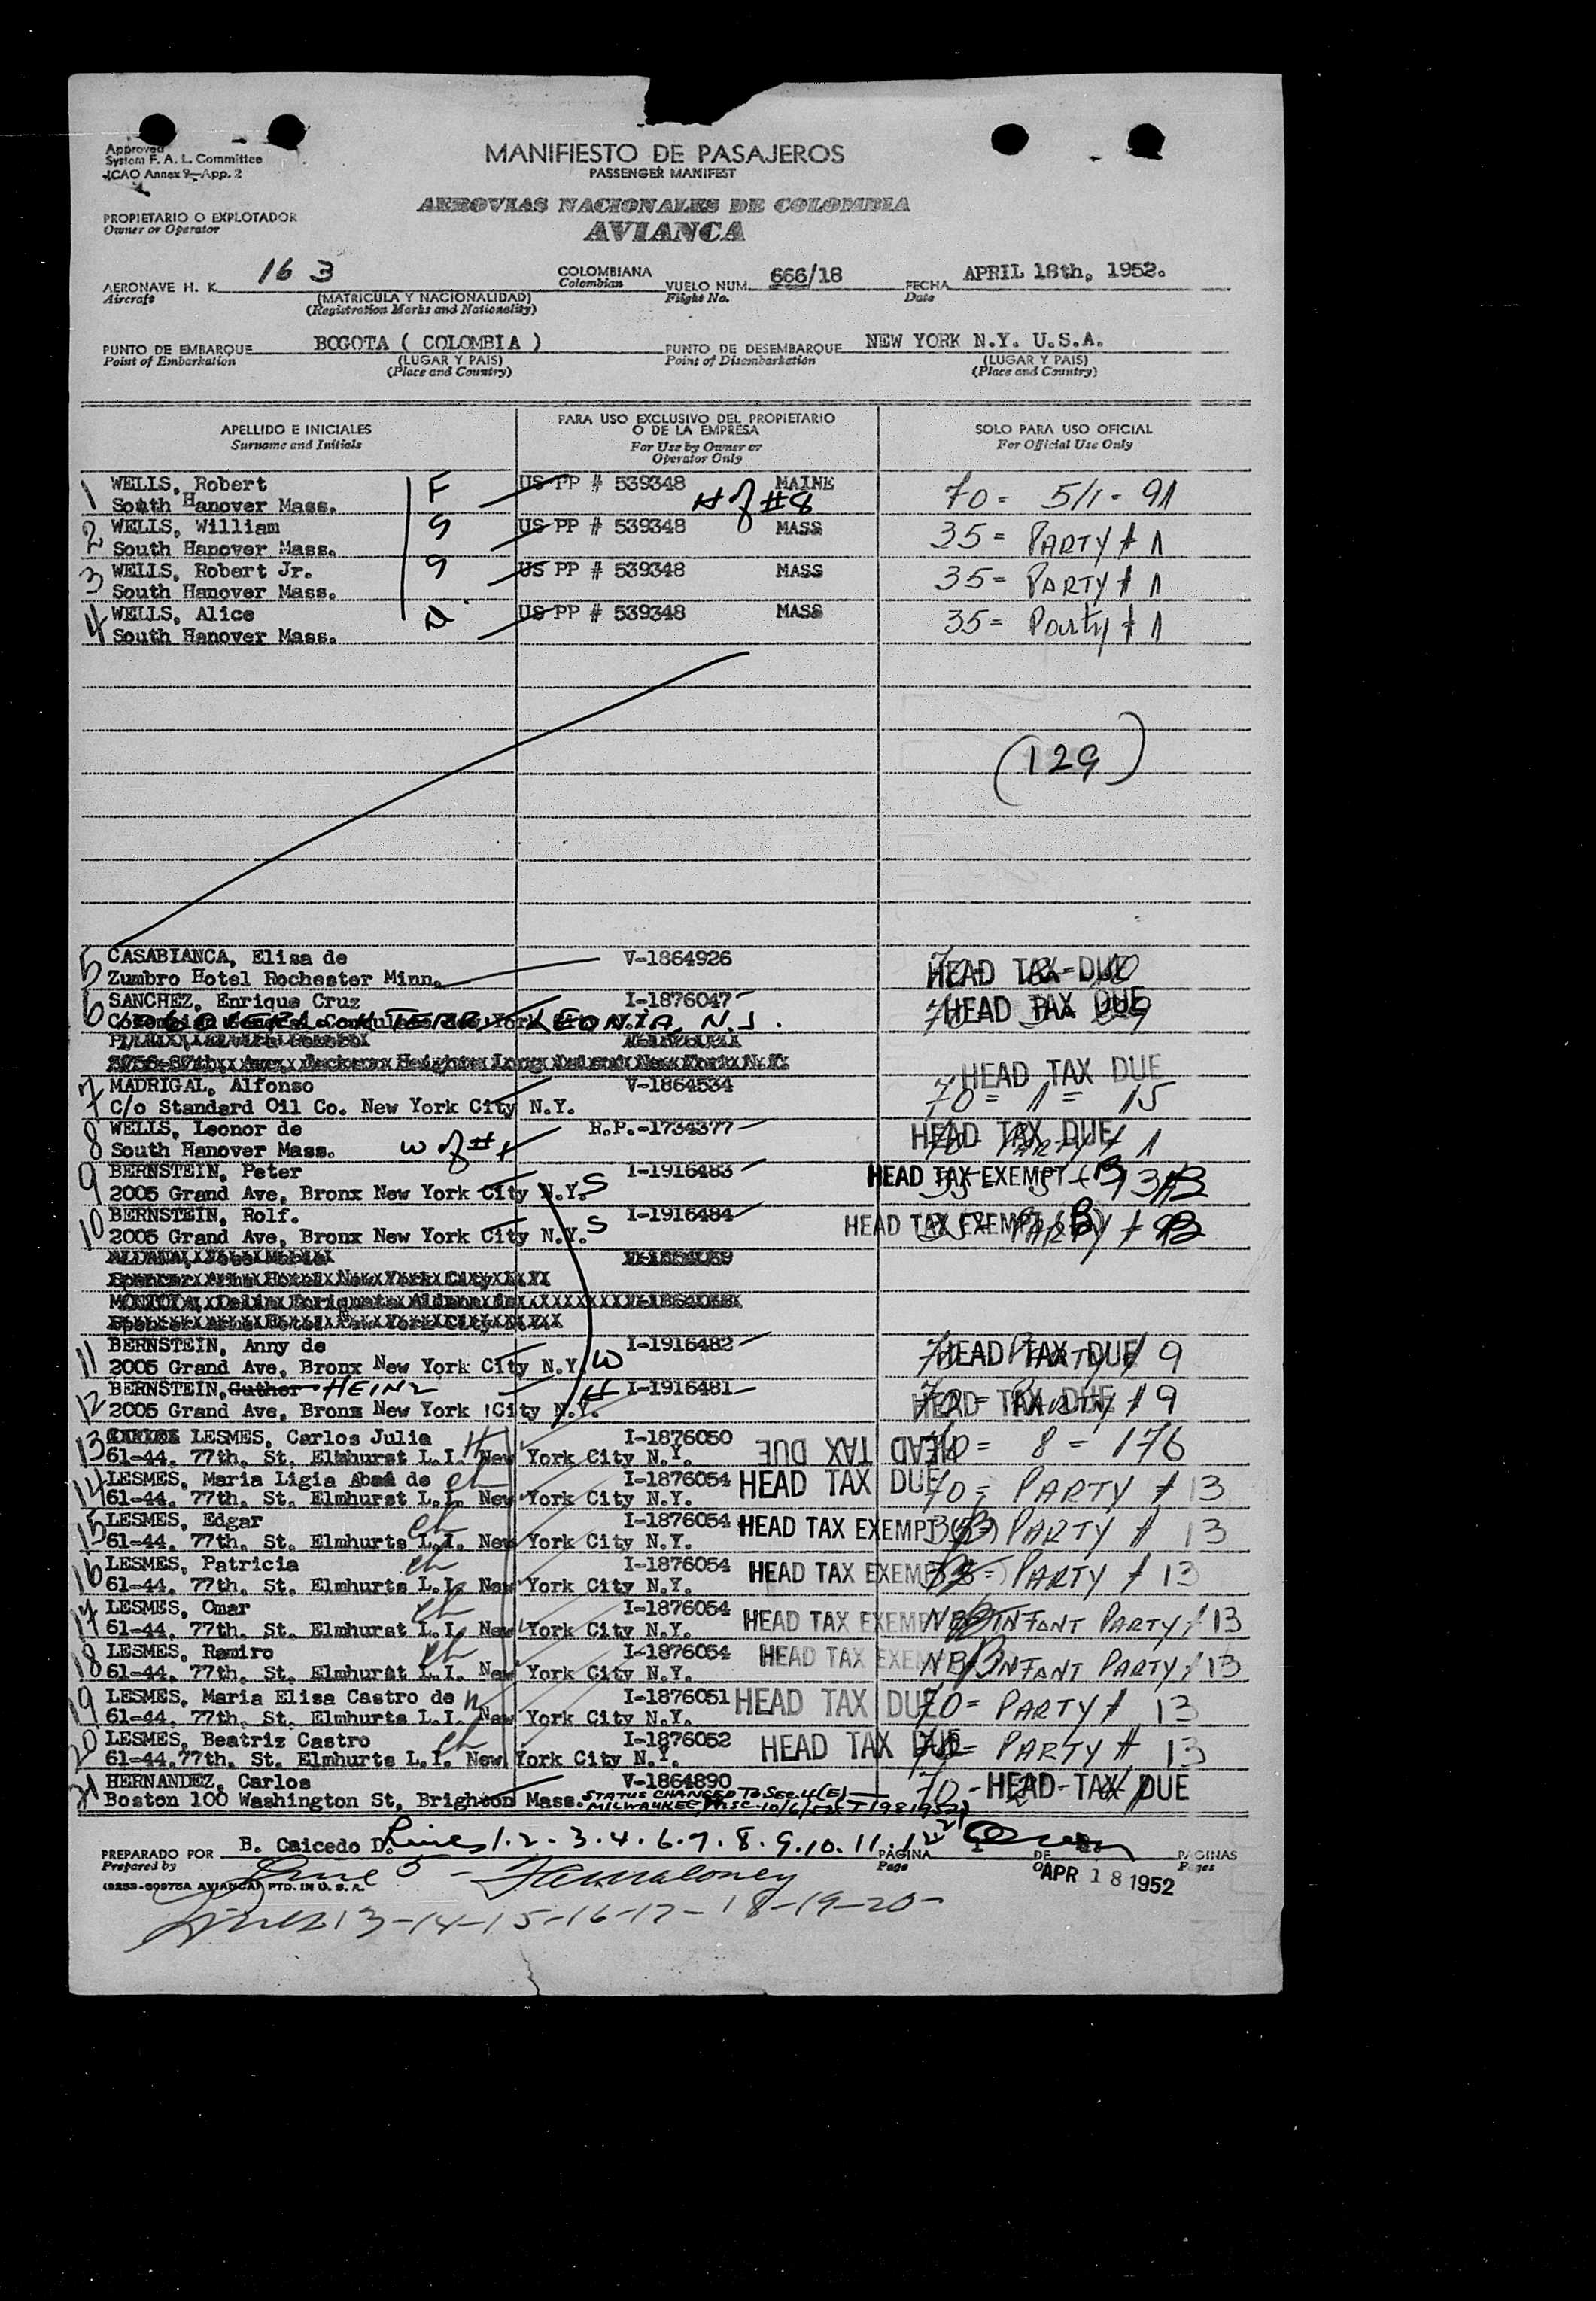 Approved
System F. A. L. Committee
ICAO Annex 9-App. 2
MANIFIESTO DE PASAJEROS
PASSENGER MANIFEST
PROPIETARIO O EXPLOTADOR
Owner or Operator
AEROVIAS NACIONALES DE COLOMBIA
AVIANCA
AERONAVE H. K. 163 COLOMBIANA VUELO NUM. 666/18 FECHA APRIL 18th, 1952.
Aircraft (MATRICULA Y NACIONALIDAD) Colombian Flight No. Date
(Registration Marks and Nationality)
PUNTO DE EMBARQUE BOGOTA ( COLOMBIA ) PUNTO DE DESEMBARQUE NEW YORK N.Y. U.S.A.
Point of Embarkation (LUGAR Y PAIS) Point of Disembarkation (LUGAR Y PAIS)
(Place and Country) (Place and Country)
APELLIDO E INICIALES PARA USO EXCLUSIVO DEL PROPIETARIO O DE LA EMPRESA SOLO PARA USO OFICIAL
Surname and Initials For Use by Owner or Operator Only For Official Use Only
1 WELLS, Robert F US PP # 539348 MAINE 70 = 5/1 - 91
South Hanover Mass. H of #8
2 WELLS, William S US PP # 539348 MASS 35 = PARTY # 1
South Hanover Mass.
3 WELLS, Robert Jr. S US PP # 539348 MASS 35 = PARTY # 1
South Hanover Mass.
4 WELLS, Alice D US PP # 539348 MASS 35 = Party # 1
South Hanover Mass.
(129)
5 CASABIANCA, Elisa de V-1864926 HEAD TAX DUE
Zumbro Hotel Rochester Minn.
6 SANCHEZ, Enrique Cruz I-1876047 HEAD TAX DUE
TERR. LEONIA, N.J.
HEAD TAX DUE
7 MADRIGAL, Alfonso V-1864534 70 = 1 = 15
C/o Standard Oil Co. New York City N.Y.
8 WELLS, Leonor de R.P.-1734377 HEAD TAX DUE PARTY # 1
South Hanover Mass. W of #1
9 BERNSTEIN, Peter I-1916483 HEAD TAX EXEMPT
2005 Grand Ave, Bronx New York City N.Y. S
10 BERNSTEIN, Rolf. I-1916484 HEAD TAX EXEMPT
2005 Grand Ave, Bronx New York City N.Y. S
11 BERNSTEIN, Anny de I-1916482 HEAD TAX DUE 70 PARTY # 9
2005 Grand Ave, Bronx New York City N.Y. W
12 BERNSTEIN, Guther HEINZ H I-1916481 HEAD TAX DUE 70 = PARTY # 9
2005 Grand Ave, Bronx New York City N.Y.
13 LESMES, Carlos Julio H I-1876050 HEAD TAX DUE 70 = 8 = 176
61-44, 77th, St. Elmhurst L.I. New York City N.Y.
14 LESMES, Maria Ligia de ch I-1876054 HEAD TAX DUE 70 = PARTY # 13
61-44, 77th, St. Elmhurst L.I. New York City N.Y.
15 LESMES, Edgar ch I-1876054 HEAD TAX EXEMPT PARTY # 13
61-44, 77th, St. Elmhurts L.I. New York City N.Y.
16 LESMES, Patricia ch I-1876054 HEAD TAX EXEMPT PARTY # 13
61-44, 77th, St. Elmhurts L.I. New York City N.Y.
17 LESMES, Omar ch I-1876054 HEAD TAX EXEMPT INFANT PARTY # 13
61-44, 77th, St. Elmhurst L.I. New York City N.Y.
18 LESMES, Ramiro ch I-1876054 HEAD TAX EXEMPT INFANT PARTY # 13
61-44, 77th, St. Elmhurst L.I. New York City N.Y.
19 LESMES, Maria Elisa Castro de I-1876051 HEAD TAX DUE 70 = PARTY # 13
61-44, 77th, St. Elmhurts L.I. New York City N.Y.
20 LESMES, Beatriz Castro ch I-1876052 HEAD TAX DUE 70 = PARTY # 13
61-44,77th, St. Elmhurts L.I. New York City N.Y.
21 HERNANDEZ, Carlos V-1864890 70 - HEAD TAX DUE
Boston 100 Washington St, Brighton Mass. STATUS CHANGED TO SEC 4(E)
MILWAUKEE, WISC. 10/6/52
PREPARADO POR B. Caicedo D. Lines 1. 2. 3. 4. 6. 7. 8. 9. 10. 11. 12 21 PAGINA DE PAGINAS
Prepared by Page Of Pages
Line 5 - APR 18 1952
AVIANCA) PTD. IN U. S. A.
Lines 13-14-15-16-17-18-19-20-